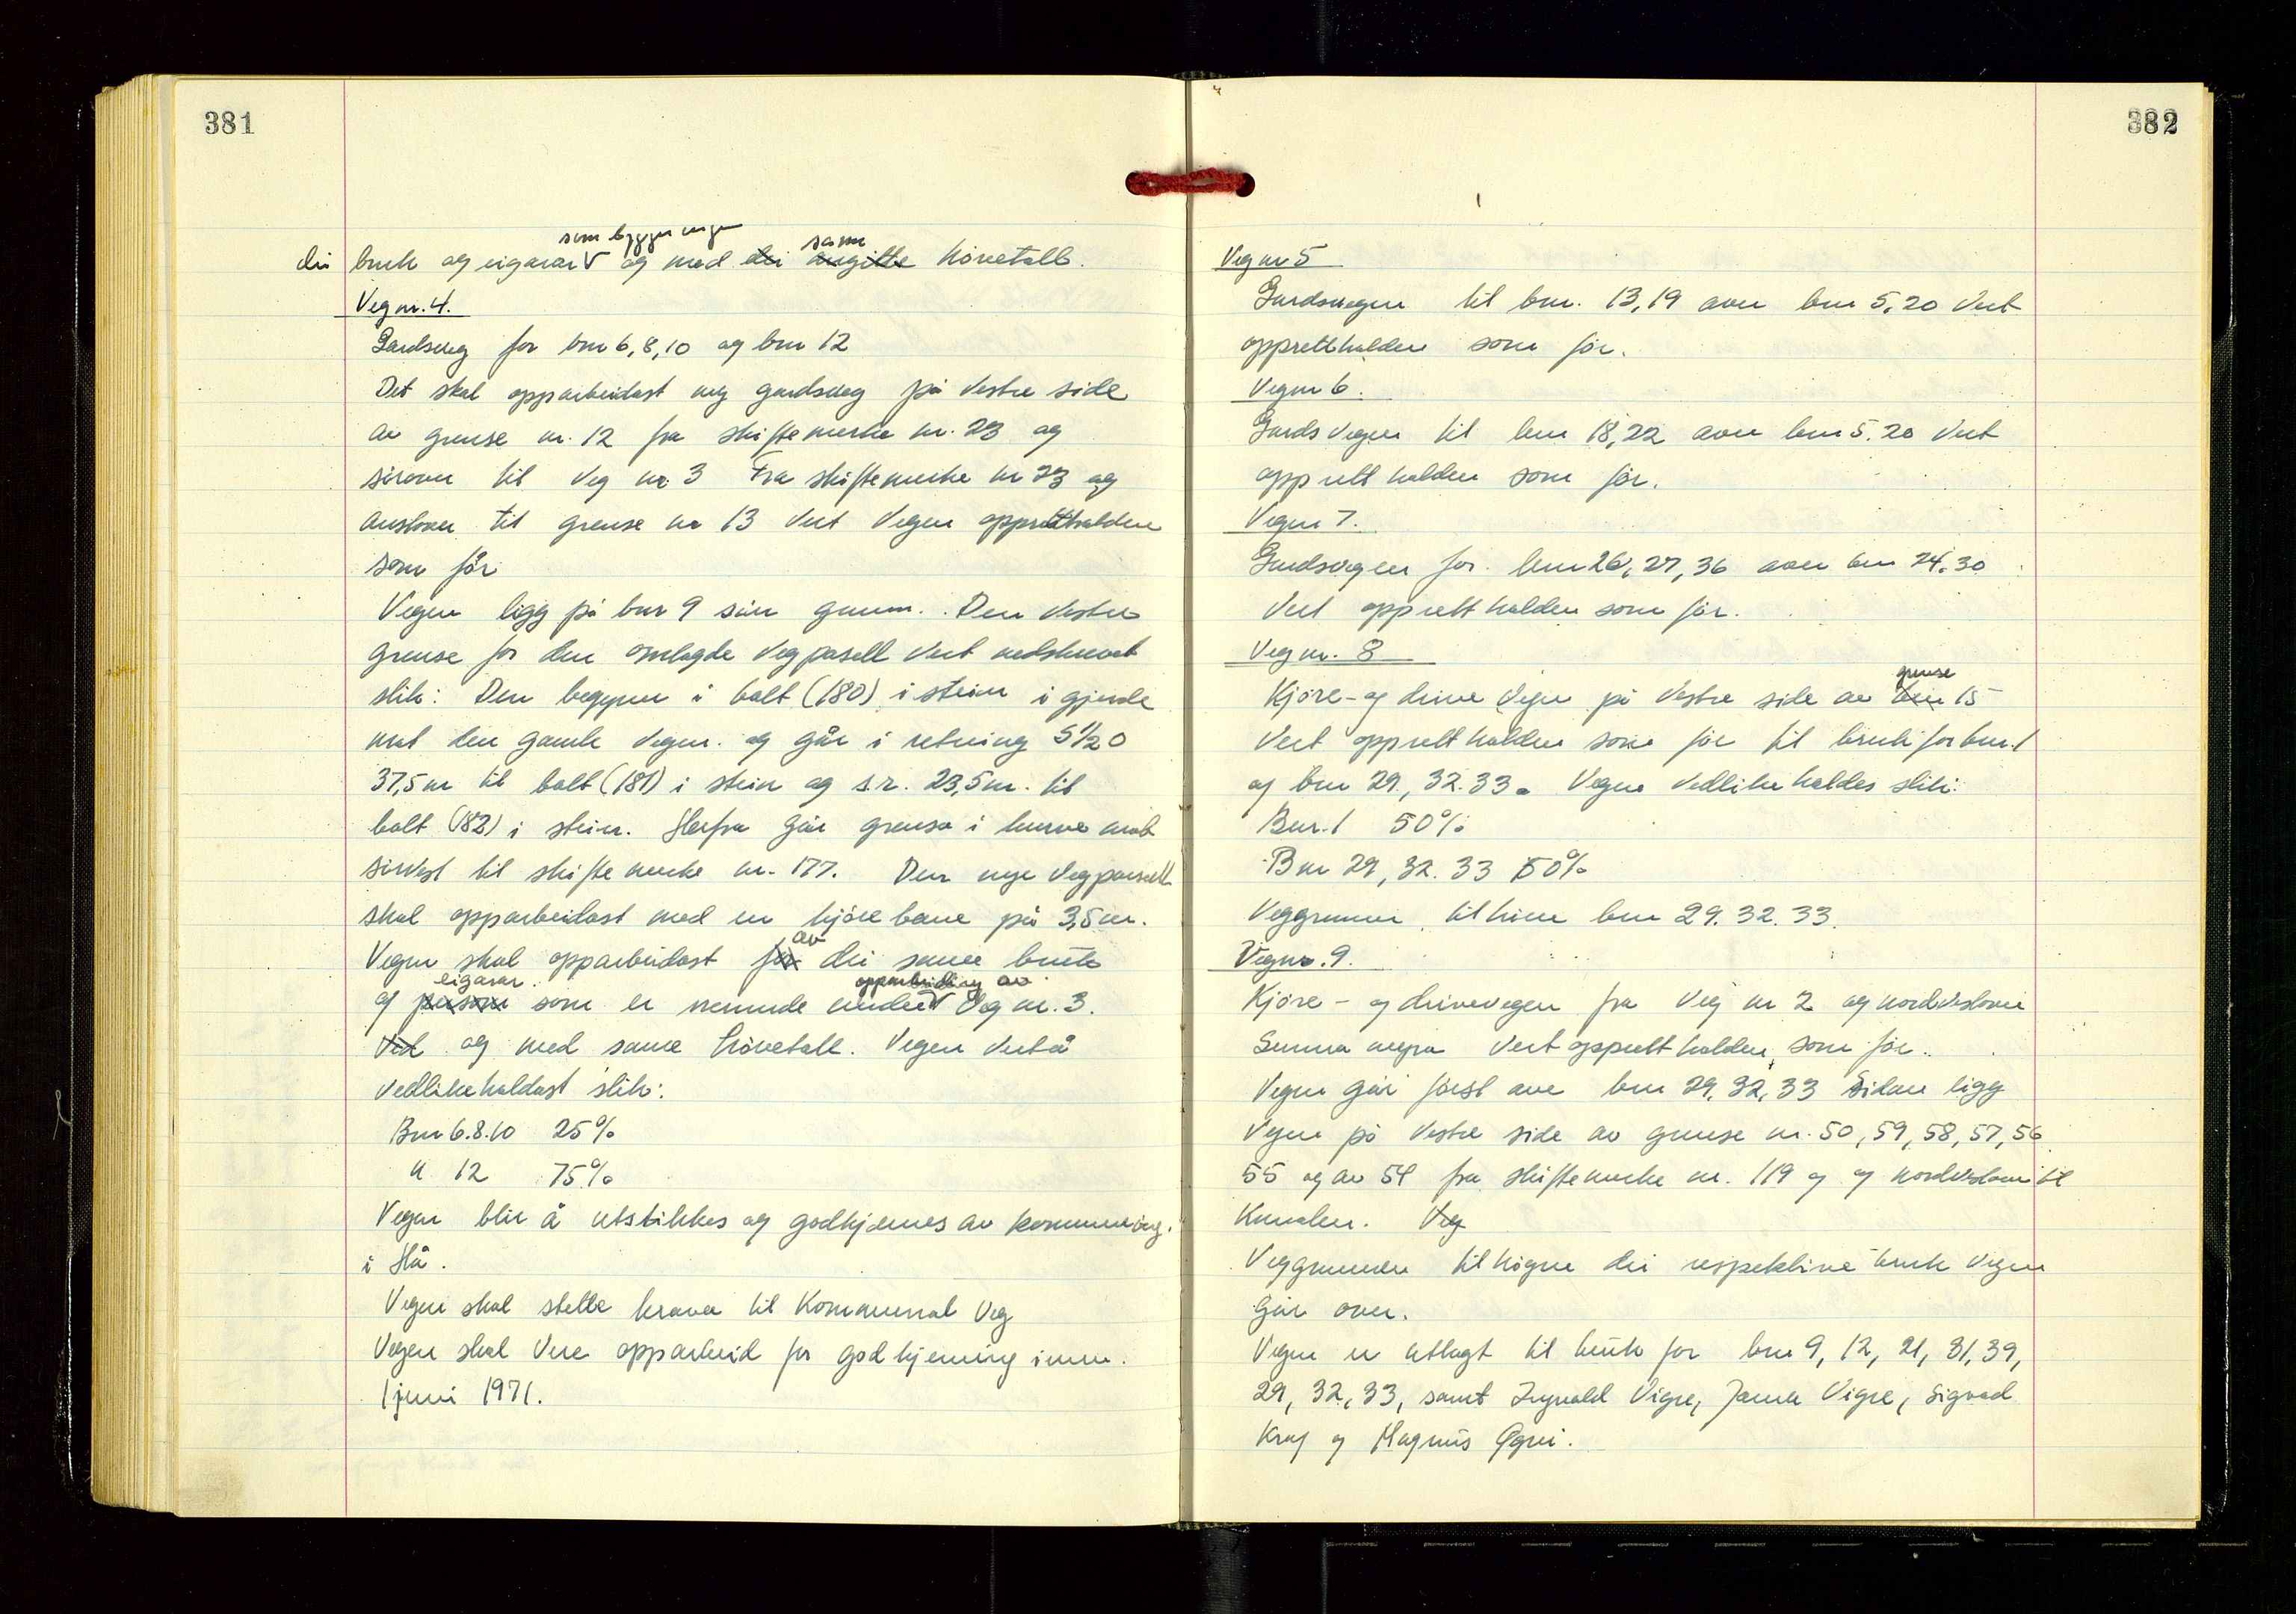 381
dei bruk og eigarar som bygger vegen og med dei angitte same hövetall.
Veg nr. 4.
Gardsveg for bnr 6,8,10 og bnr 12
Det skal opparbeidast ny gardsveg på vestre side
av grense nr. 12 fra skiftemerke nr. 23 og
sörover til veg nr 3 Fra skiftemerke nr 23 og
austover til grense nr 13 vert vegen oppretthalden
som för
Vegen ligg på bnr 9 sin grunn. Den vestre
grense for den omlagde vegparsell vert nedskrevet
slik: Den begynner i bolt (180) i stein i gjerde
mot den gamle vegen. og går i retning S 1/2 O
37,5m til bolt (181) i stein og s.r. 23,5m. til
bolt (182) i stein. Herfra går grensa i kurve mot
sörvest til skiftemerke nr. 177. Den nye vegparsell
skal opparbeidast med en kjörebane på 3,5m.
Vegen skal opparbeidast for av dei same bruk
og person eigarar som er nemnde under opparbeiding av veg nr. 3.
Ved og med same hövetall. Vegen vert å
vedlikehaldast slik:
Bnr 6.8.10 25%
" 12 75%
Vegen blir å utstikkes og godkjennes av kommuneing.
i Hå.
Vegen skal stette krava til Kommunal veg
Vegen skal vere opparbeid for godkjenning innen.
1 juni 1971.
382
Veg nr 5
Gardsvegen til bnr. 13,19 over bnr 5,20 vert
oppretthalden som för.
Veg nr 6.
Gardsvegen til bnr 18,22 over bnr 5.20 vert
oppretthalden som för.
Veg nr 7.
Gardsvegen for bnr 26,27,36 over bnr 24.30
vert oppretthalden som för.
Veg nr. 8
Kjöre- og drive vegen på vestre side av bnr grense 15
vert oppretthalden som för til bruk for bnr. 1
og bnr 29, 32.33. Vegen vedlikehaldes slik:
Bnr. 1 50%
Bnr 29, 32. 33 50%
Veggrunnen tilhörer bnr 29. 32. 33.
Veg nr. 9.
Kjöre- og drivevegen fra veg nr 2 og nordvestover
Sunna myra vert oppretthalden som för.
Vegen går först over bnr 29, 32, 33 Sidan ligg
vegen på vestre side av grense nr. 50, 59, 58, 57, 56
55 og av 54 fra skiftemerke nr. 119 og og nordvestover til
Kanalen. Veg
Veggrunnen tilhöyrer dei respektive bruk vegen
går over.
Vegen er utlagt til bruk for bnr 9, 12, 21, 31, 39,
29, 32, 33, samt Ingvald Vigre, Janna Vigre, Sigvad
Krag og Magnus Ognei.